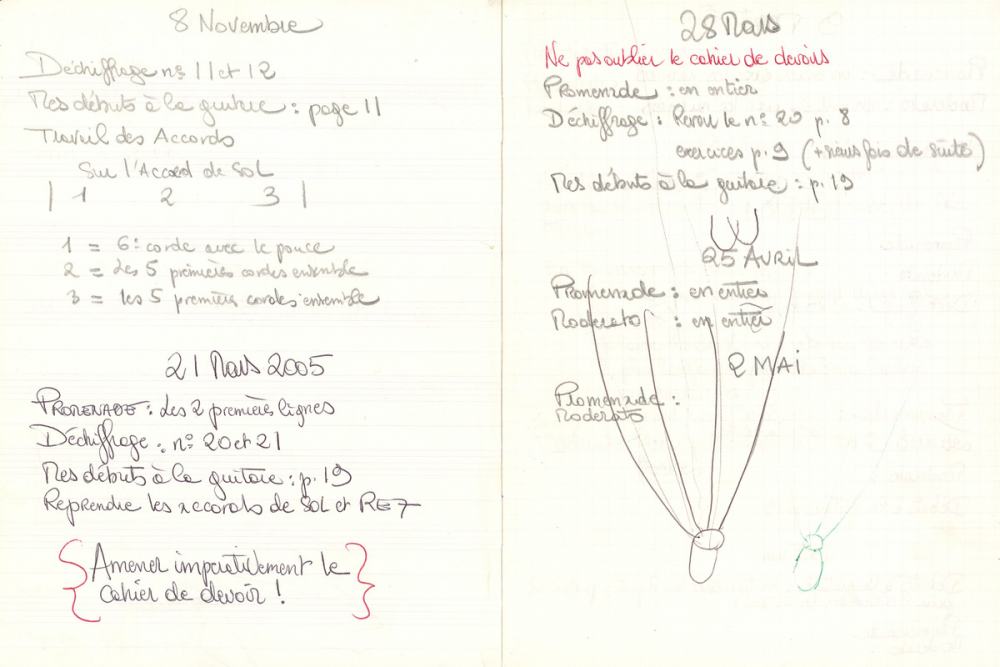 8 Novembre
Déchiffrage nos 11 et 12
Mes débuts à la guitare : page 11
Travail des Accords
Sur l'Accord de SOL
| 1 2 3 |
1 = 6e corde avec le pouce
2 = les 5 premières cordes ensemble
3 = les 5 premières cordes ensemble
21 Mars 2005
PROMENADE : les 2 premières lignes
Déchiffrage : nos 20 et 21
Mes débuts à la guitare : p. 19
Reprendre les accords de SOL et RE7
Amener impérativement le
cahier de devoir !
28 Mars
Ne pas oublier le cahier de devoirs
Promenade : en entier
Déchiffrage : Revoir le no 20 p. 8
exercices p. 9 (plusieurs fois de suite)
Mes débuts à la guitare : p. 19
25 Avril
Promenade : en entier
Moderato : en entier
2 MAI
Promenade :
Moderato